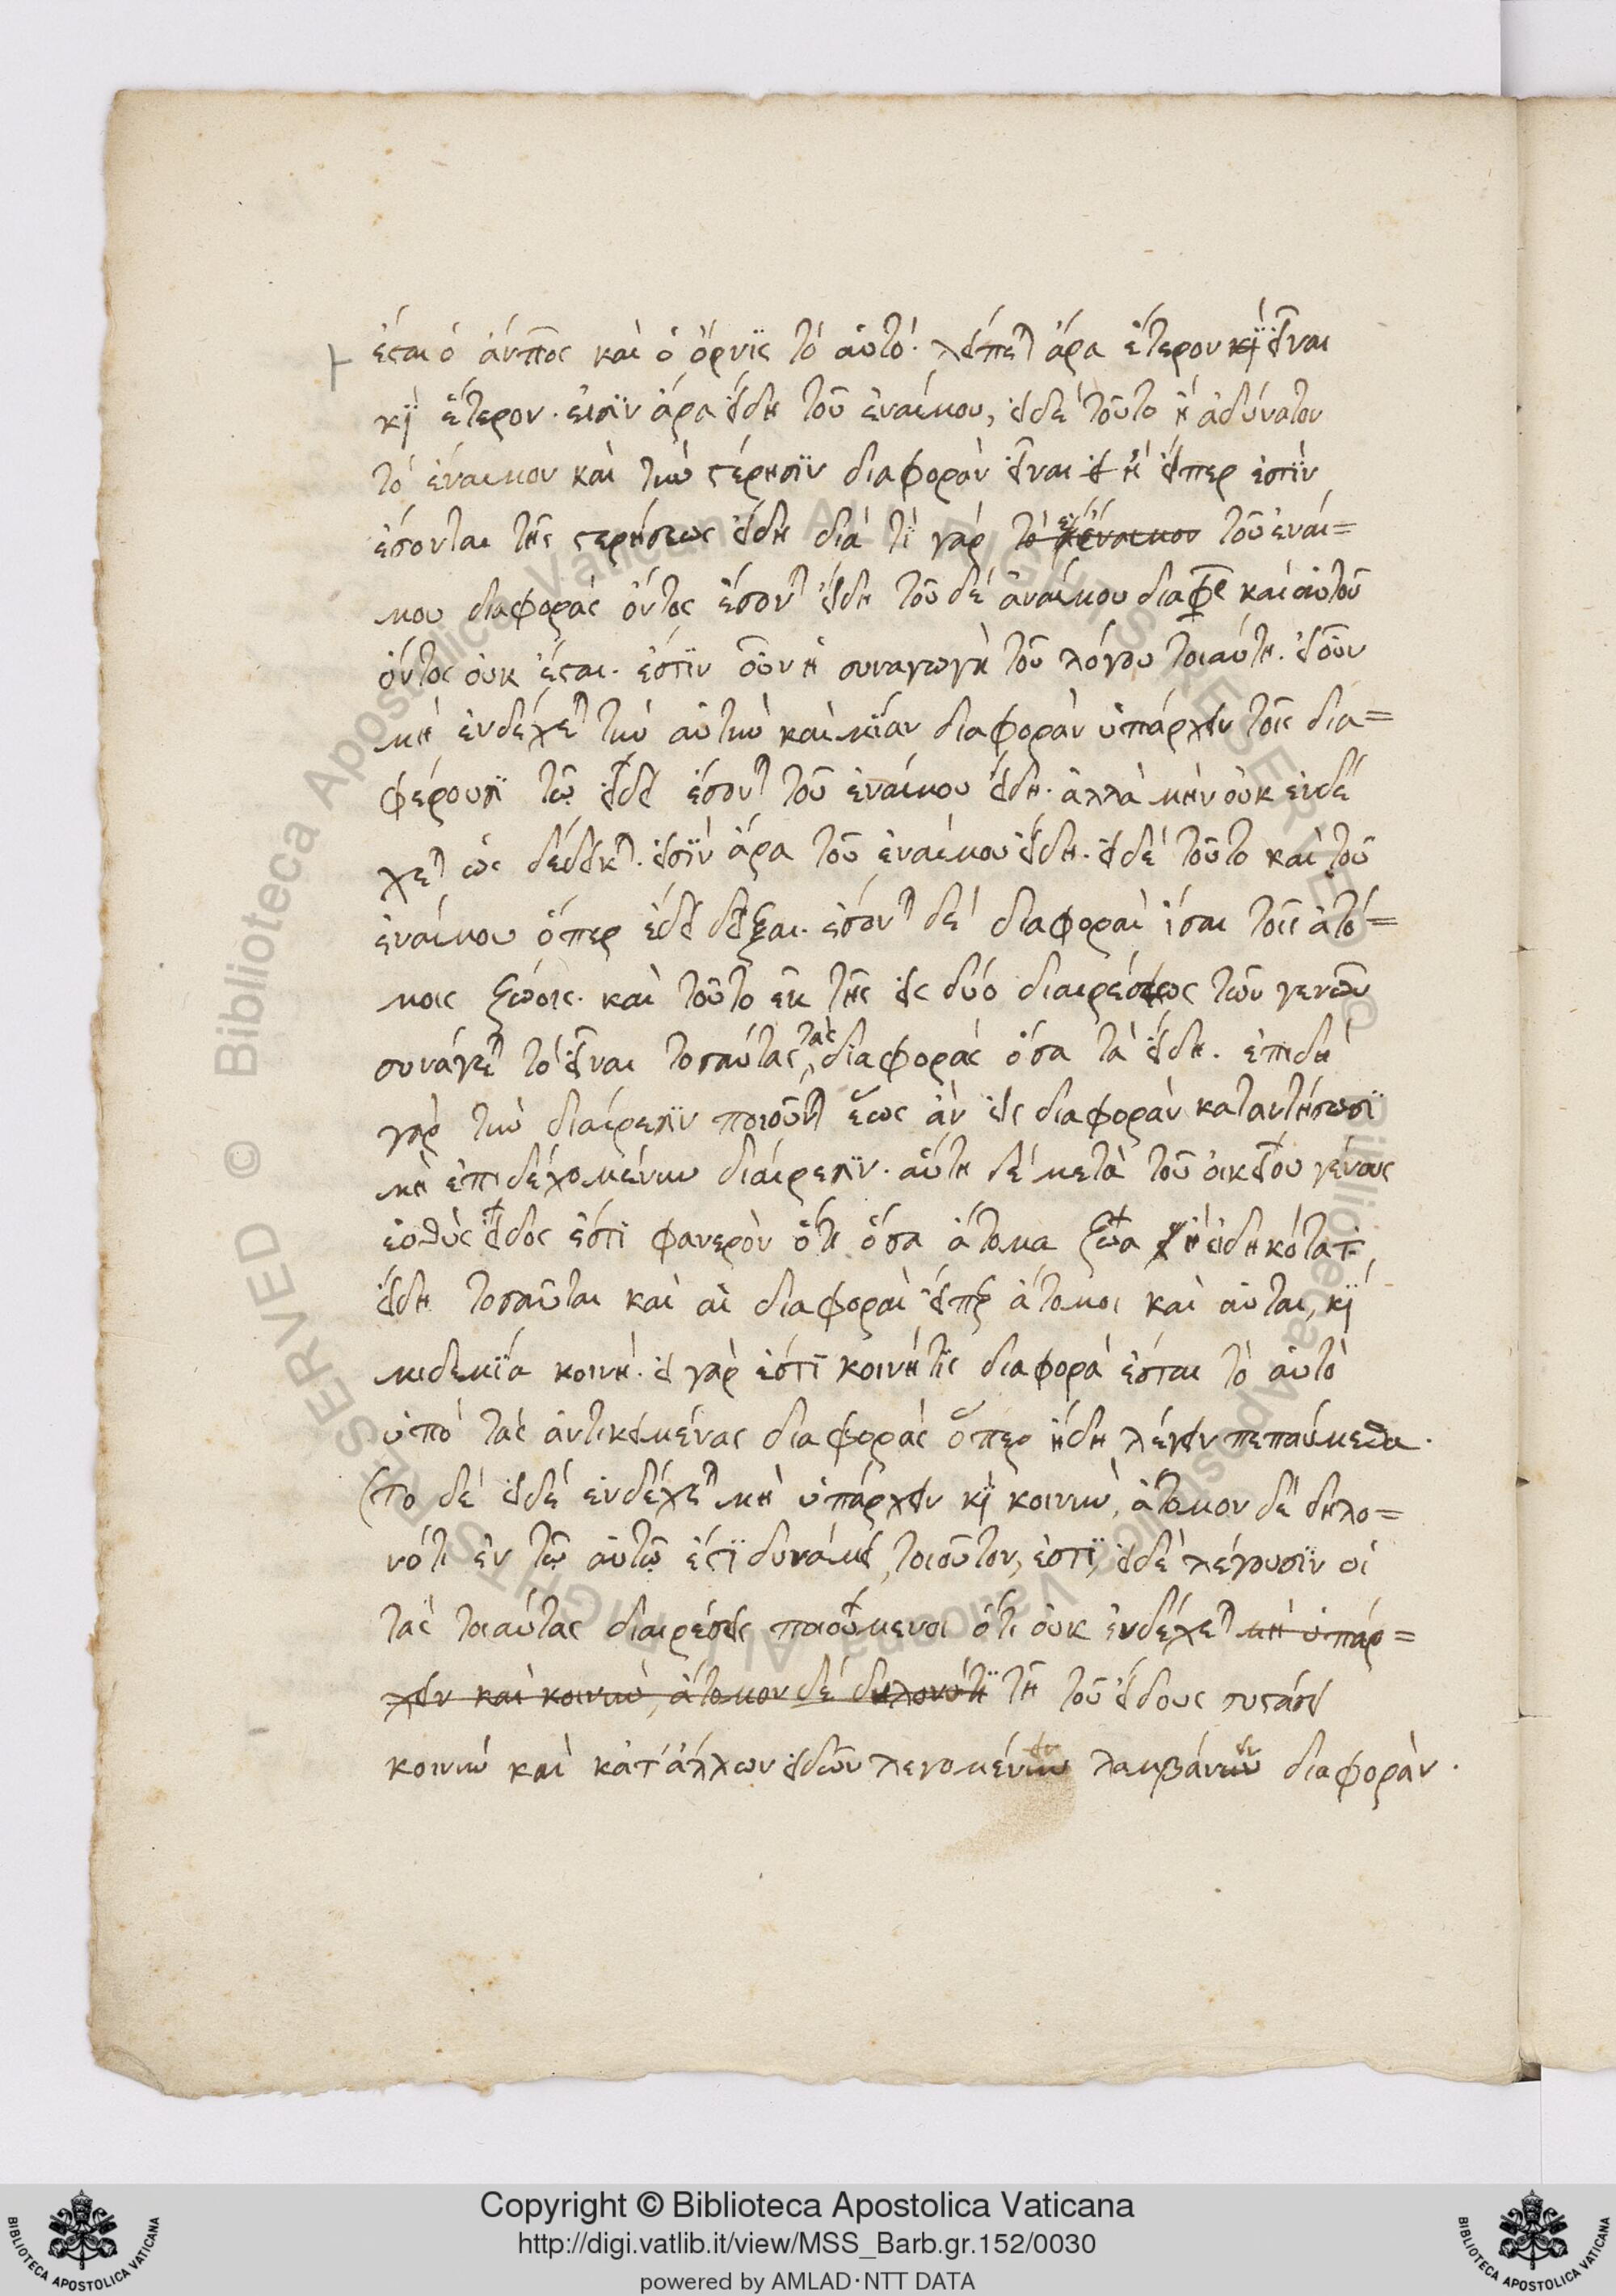 ἔσται ὁ ἄνπος καὶ ὁ ὄρνις τὸ αὐτό. λείπεται ἄρα ἕτερον καὶ εἶναι
καὶ ἕτερον. εἰσὶν ἄρα εἴδη τοῦ ἐναίμου, εἰ δὲ τοῦτο ἢ ἀδύνατον
τὸ ἔναιμον καὶ τὴν στέρησιν διαφορὰν εἶναι εἰ ἢ εἴπερ ἐστὶν
ἔσονται τῆς στερήσεως εἴδη διὰ τί γὰρ τοῦ ἐναί=
μου διαφορᾶς ὄντος ἔσονται εἴδη τοῦ δὲ ἀναίμου διαφο καὶ αὐτοῦ
ὄντος οὐκ ἔσται. ἔστιν οὖν ἡ συναγωγὴ τοῦ λόγου τοιαύτη. εἰ οὖν
μὴ ἐνδέχεται τὴν αὐτὴν καὶ μίαν διαφορὰν ὑπάρχειν τοῖς δια=
φέρουσι τῷ εἴδει ἔσονται τοῦ ἐναίμου εἴδη. ἀλλὰ μὴν οὐκ ἐνδέ
χεται ὡς δέδεικται. εἰσὶν ἄρα τοῦ ἐναίμου εἴδη. εἰ δὲ τοῦτο καὶ τοῦ
ἐναίμου ὅπερ ἔδει δεῖξαι. ἔσονται δὲ διαφοραὶ ἴσαι τοῖς ἀτό=
μοις ζώοις. καὶ τοῦτο ἐκ τῆς εἰς δύο διαιρέσεως τῶν γενῶν
συνάγεται τὸ εἶναι τοσαύτας τὰς διαφορὰς ὅσα τὰ εἴδη. ἐπειδὴ
γὰρ τὴν διαίρεσιν ποιοῦνται ἕως ἂν εἰς διαφορὰν καταντήσωσι
μὴ ἐπιδεχομένην διαίρεσιν. αὕτη δὲ μετὰ τοῦ οἰκείου γένους
εὐθὺς εἶδός ἐστι φανερὸν ὅτι ὅσα ἄτομα ζῶα ἢ εἰδηκότατ
εἴδη τοσαῦται καὶ αἱ διαφοραὶ εἴπερ ἄτομοι καὶ αὗται, καὶ
μιδεμία κοινή. εἰ γὰρ ἐστὶ κοινή τις διαφορὰ ἔσται τὸ αὐτὸ
ὑπὸ τὰς ἀντικειμένας διαφορὰς ὅπερ ἤδη λέγειν πεπαύμεθα.
(το δὲ εἰ δὲ ἐνδέχεται μὴ ὑπάρχειν καὶ κοινὴν, ἄτομον δὲ δηλο=
νότι ἐν τῷ αὐτῷ ἐστὶ δυνάμει, τοιοῦτον, ἐστὶ, εἰ δὲ λέγουσιν οἱ
τὰς τοιαύτας διαιρέσεις ποιούμενοι ὅτι οὐκ ἐνδέχεται μὴ ὑπάρ=
χειν καὶ κοινὴν, ἄτομον δὲ δηλονότι τῇ τοῦ εἴδους συστάσει
κοινὴν καὶ κατ' ἄλλων εἰδῶν λεγομένην λαμβάνειν διαφορὰν.
Copyright © Biblioteca Apostolica Vaticana
http://digi.vatlib.it/view/MSS_Barb.gr.152/0030
powered by AMLAD·NTT DATA